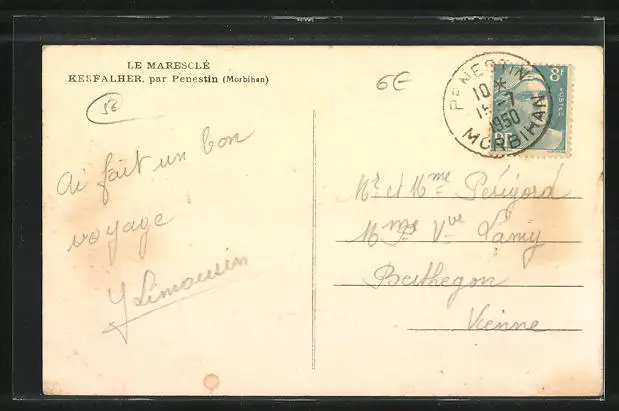 LE MARESCLÉ
KERFALHER, par Penestin (Morbihan)
56
6E
PENESTIN
10 *
15 -7
1950
MORBIHAN
8F
POSTES
RF
ai fait un bon
voyage
Y Limousin
Mr et Mme Périgord
Mme Vve Lamy
Berthegon
Vienne